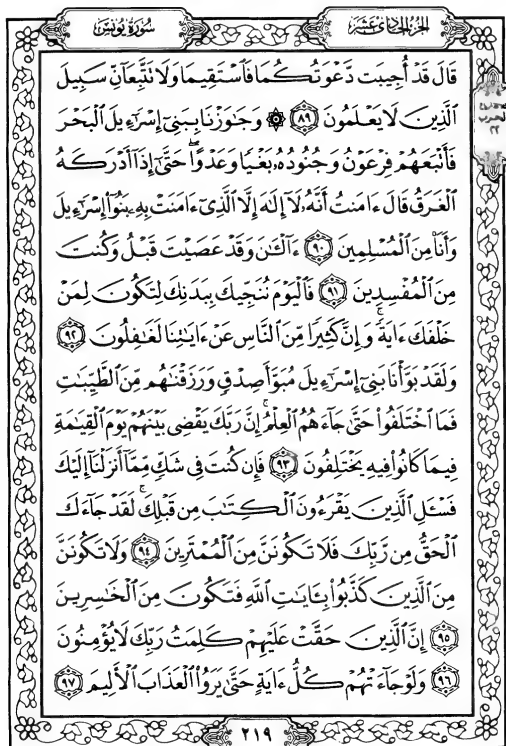 سُورَةُ يُونُسَ
الجُزءُ الحَادِى عَشَرَ
قَالَ قَدْ أُجِيبَت دَّعْوَتُكُمَا فَٱسْتَقِيمَا وَلَا تَتَّبِعَآنِّ سَبِيلَ
ٱلَّذِينَ لَا يَعْلَمُونَ ﴿٨٩﴾ ۞ وَجَٰوَزْنَا بِبَنِىٓ إِسْرَٰٓءِيلَ ٱلْبَحْرَ
فَأَتْبَعَهُمْ فِرْعَوْنُ وَجُنُودُهُۥ بَغْيًا وَعَدْوًا ۖ حَتَّىٰٓ إِذَآ أَدْرَكَهُ
ٱلْغَرَقُ قَالَ ءَامَنتُ أَنَّهُۥ لَآ إِلَٰهَ إِلَّا ٱلَّذِىٓ ءَامَنَتْ بِهِۦ بَنُوٓا۟ إِسْرَٰٓءِيلَ
وَأَنَا۠ مِنَ ٱلْمُسْلِمِينَ ﴿٩٠﴾ ءَآلْـَٰٔنَ وَقَدْ عَصَيْتَ قَبْلُ وَكُنتَ
مِنَ ٱلْمُفْسِدِينَ ﴿٩١﴾ فَٱلْيَوْمَ نُنَجِّيكَ بِبَدَنِكَ لِتَكُونَ لِمَنْ
خَلْفَكَ ءَايَةً ۚ وَإِنَّ كَثِيرًا مِّنَ ٱلنَّاسِ عَنْ ءَايَٰتِنَا لَغَٰفِلُونَ ﴿٩٢﴾
وَلَقَدْ بَوَّأْنَا بَنِىٓ إِسْرَٰٓءِيلَ مُبَوَّأَ صِدْقٍ وَرَزَقْنَٰهُم مِّنَ ٱلطَّيِّبَٰتِ
فَمَا ٱخْتَلَفُوا۟ حَتَّىٰ جَآءَهُمُ ٱلْعِلْمُ ۚ إِنَّ رَبَّكَ يَقْضِى بَيْنَهُمْ يَوْمَ ٱلْقِيَٰمَةِ
فِيمَا كَانُوا۟ فِيهِ يَخْتَلِفُونَ ﴿٩٣﴾ فَإِن كُنتَ فِى شَكٍّ مِّمَّآ أَنزَلْنَآ إِلَيْكَ
فَسْـَٔلِ ٱلَّذِينَ يَقْرَءُونَ ٱلْكِتَٰبَ مِن قَبْلِكَ ۚ لَقَدْ جَآءَكَ
ٱلْحَقُّ مِن رَّبِّكَ فَلَا تَكُونَنَّ مِنَ ٱلْمُمْتَرِينَ ﴿٩٤﴾ وَلَا تَكُونَنَّ
مِنَ ٱلَّذِينَ كَذَّبُوا۟ بِـَٔايَٰتِ ٱللَّهِ فَتَكُونَ مِنَ ٱلْخَٰسِرِينَ
﴿٩٥﴾ إِنَّ ٱلَّذِينَ حَقَّتْ عَلَيْهِمْ كَلِمَتُ رَبِّكَ لَا يُؤْمِنُونَ
﴿٩٦﴾ وَلَوْ جَآءَتْهُمْ كُلُّ ءَايَةٍ حَتَّىٰ يَرَوُا۟ ٱلْعَذَابَ ٱلْأَلِيمَ ﴿٩٧﴾
الحزب
٢٢
٢١٩